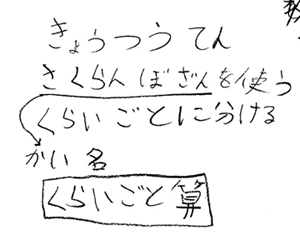 きょうつうてん
さくらんぼざんを使う
くらいごとに分ける
かい名
くらいごと算